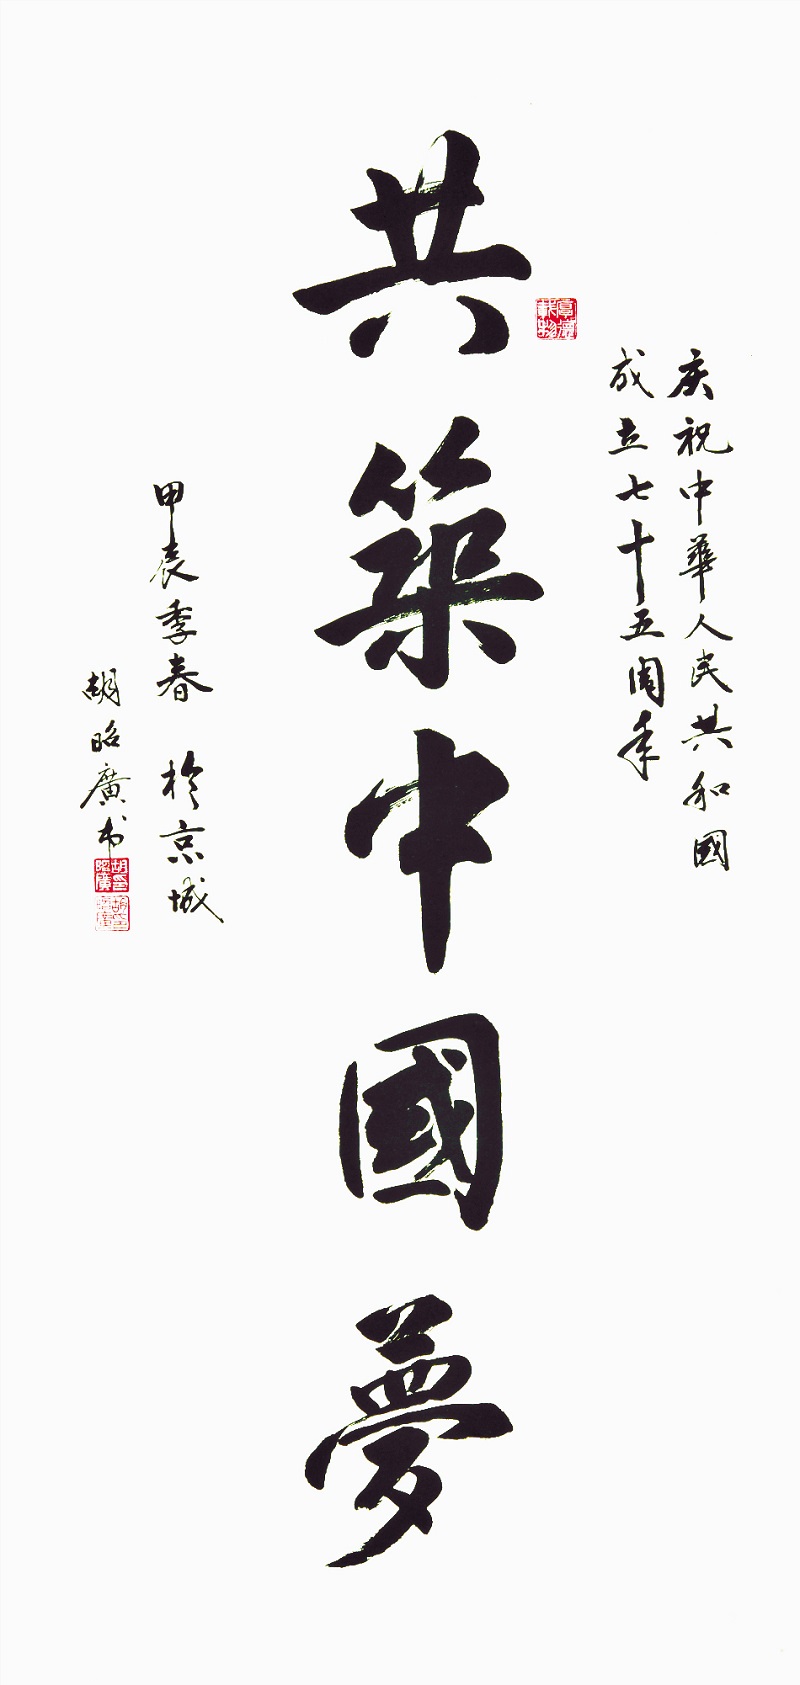 庆祝中華人民共和國
成立七十五周年
共築中國夢
甲辰季春 於京城
胡昭廣书
厚德載物
胡昭廣印